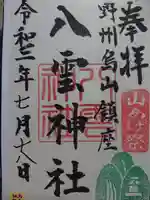 奉拝
野州烏山鎮座
八雲神社
令和二年七月十八日
山あげ祭